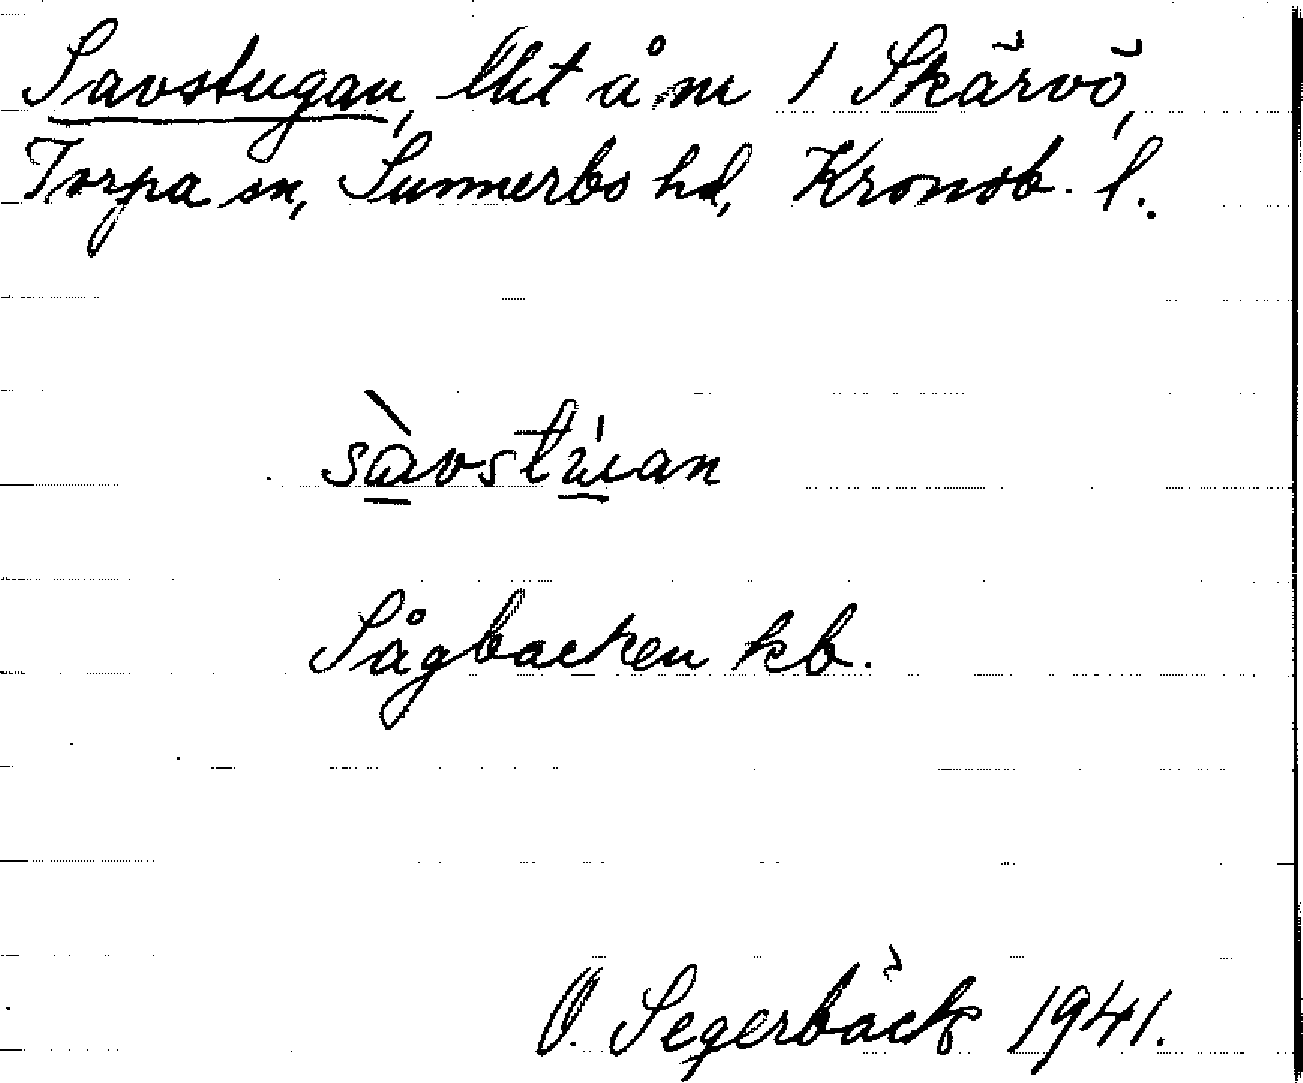 Savstugan, lht å m 1 Skärvö,
Torpa sn, Sunnerbo hd, Kronob. l.
sàvstúan
Sågbacken kb.
O. Segerbäck 1941.